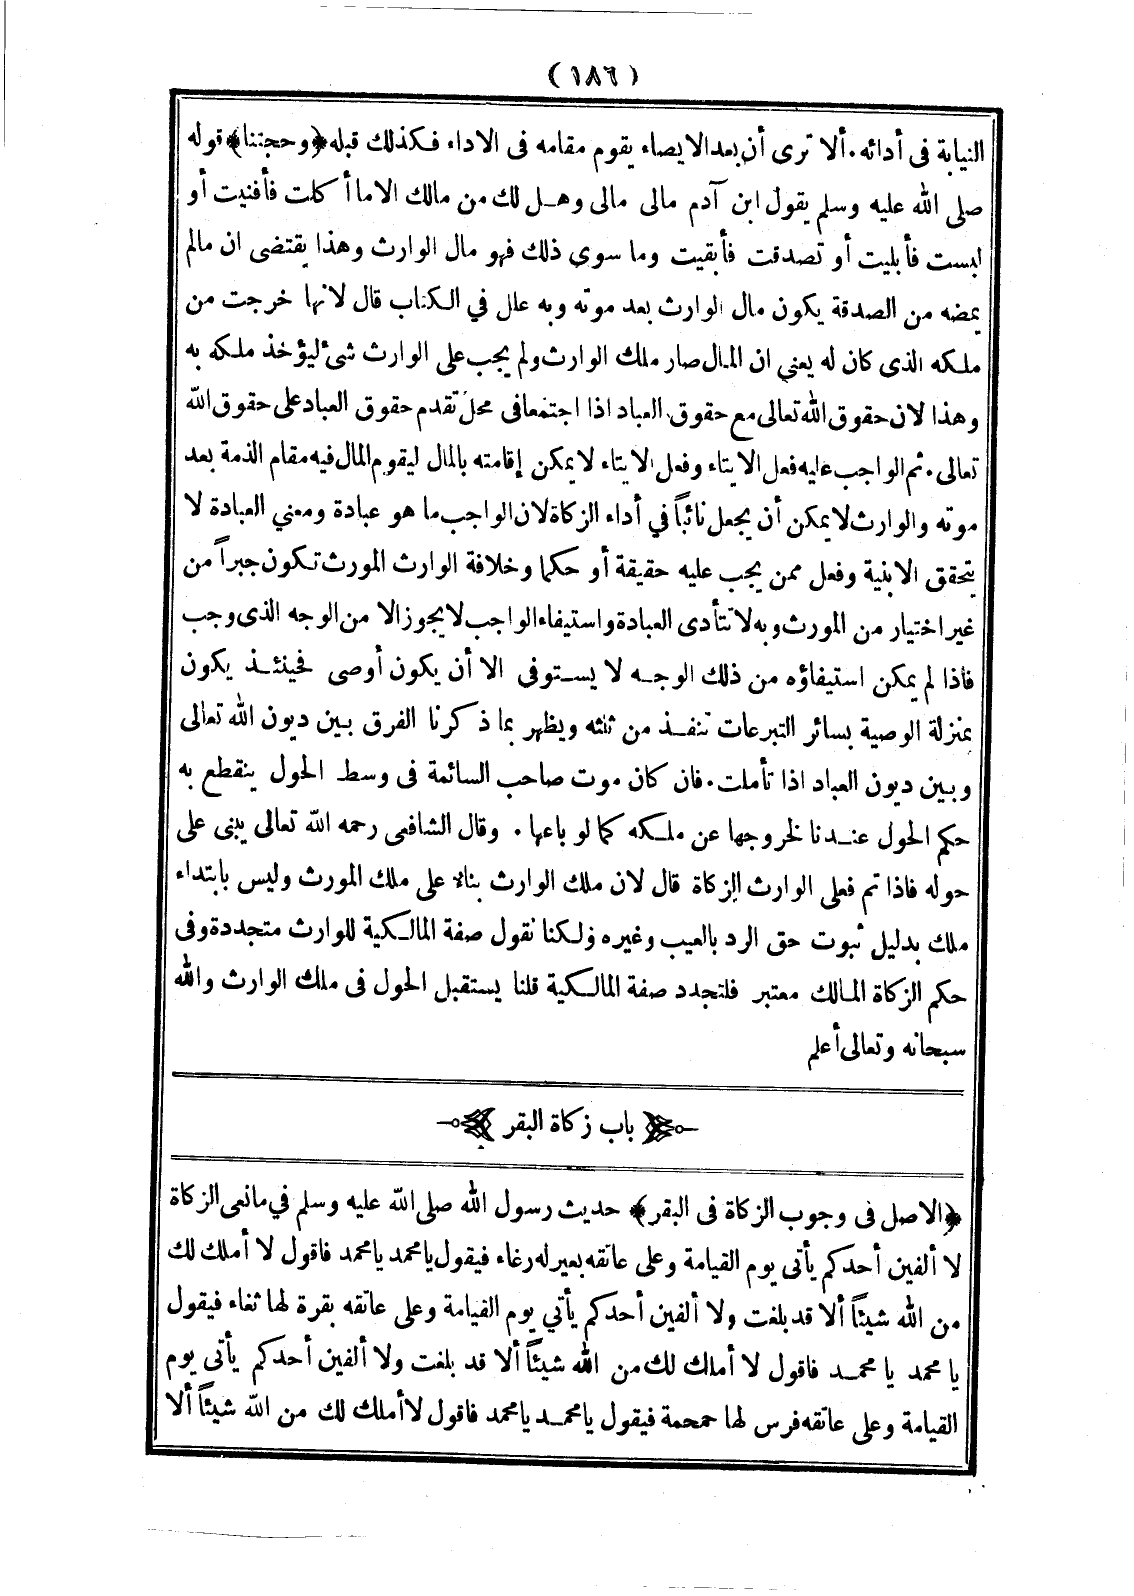 (١٨٦)
النيابة فى أدائه. ألا ترى أن بعد الايصاء يقوم مقامه فى الاداء فكذلك قبله ﴿وحجتنا﴾ قوله
صلى الله عليه وسلم يقول ابن آدم مالى مالى وهل لك من مالك الا ما أكلت فأفنيت أو
لبست فأبليت أو تصدقت فأبقيت وما سوى ذلك فهو مال الوارث وهذا يقتضى ان مالم
يمضه من الصدقة يكون مال الوارث بعد موته وبه علل في الكتاب قال لانها خرجت من
ملكه الذى كان له يعني ان المال صار ملك الوارث ولم يجب على الوارث شئ ليؤخذ ملكه به
وهذا لان حقوق الله تعالى مع حقوق العباد اذا اجتمعا فى محل تقدم حقوق العباد على حقوق الله
تعالى. ثم الواجب عليه فعل الايتاء وفعل الايتاء لا يمكن إقامته بالمال ليقوم المال فيه مقام الذمة بعد
موته والوارث لا يمكن أن يجعل نائباً في أداء الزكاة لان الواجب ما هو عبادة ومعني العبادة لا
يتحقق الا بنية وفعل ممن يجب عليه حقيقة أو حكما وخلافة الوارث المورث تكون جبراً من
غير اختيار من المورث وبه لا تتأدى العبادة واستيفاء الواجب لا يجوز الا من الوجه الذى وجب
فاذا لم يمكن استيفاؤه من ذلك الوجه لا يستوفى الا أن يكون أوصى فحينئذ يكون
بمنزلة الوصية بسائر التبرعات تنفذ من ثلثه ويظهر بما ذكرنا الفرق بين ديون الله تعالى
وبين ديون العباد اذا تأملت. فان كان موت صاحب السائمة فى وسط الحول ينقطع به
حكم الحول عندنا لخروجها عن ملكه كما لو باعها. وقال الشافعى رحمه الله تعالى يبنى على
حوله فاذا تم فعلى الوارث الزكاة قال لان ملك الوارث بناء على ملك المورث وليس بابتداء
ملك بدليل ثبوت حق الرد بالعيب وغيره ولكنا نقول صفة المالكية للوارث متجددة وفى
حكم الزكاة المالك معتبر فلتجدد صفة المالكية قلنا يستقبل الحول فى ملك الوارث والله
سبحانه وتعالى أعلم
باب زكاة البقر
﴿الاصل فى وجوب الزكاة فى البقر﴾ حديث رسول الله صلى الله عليه وسلم في مانعى الزكاة
لا ألفين أحدكم يأتى يوم القيامة وعلى عاتقه بعير له رغاء فيقول يا محمد يا محمد فاقول لا أملك لك
من الله شيئاً ألا قد بلغت ولا ألفين أحدكم يأتي يوم القيامة وعلى عاتقه بقرة لها ثغاء فيقول
يا محمد يا محمد فاقول لا أملك لك من الله شيئاً ألا قد بلغت ولا ألفين أحدكم يأتى يوم
القيامة وعلى عاتقه فرس لها حمحمة فيقول يا محمد يا محمد فاقول لا أملك لك من الله شيئاً ألا